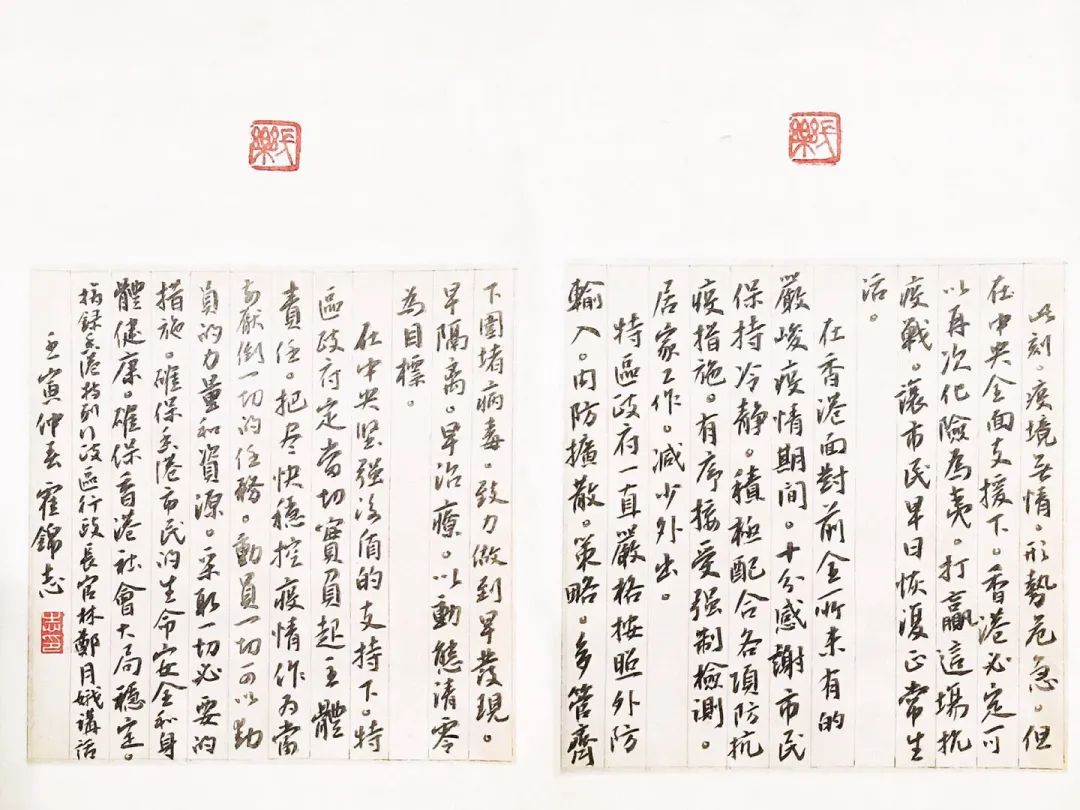 長樂
此刻。疫境無情。形勢危急。但
在中央全面支援下。香港必定可
以再次化險為夷。打贏這場抗
疫戰。讓市民早日恢復正常生
活。
在香港面對前全所未有的
嚴峻疫情期間。十分感謝市民
保持冷静。積極配合各項防抗
疫措施。有序接受强制檢測。
居家工作。減少外出。
特區政府一直嚴格按照外防
輸入。内防擴散。策略。多管齊
長樂
下圍堵病毒。致力做到早發現。
早隔离。早治療。以動態清零
為目標。
在中央坚强後盾的支持下。特
區政府定當切實負起主體
責任。把尽快穩控疫情作为當
前壓倒一切的任務。動員一切可以動
員的力量和資源。采取一切必要的
措施。確保香港市民的生命安全和身
體健康。確保香港社會大局穩定。
摘録香港特别行政區行政長官林鄭月娥講話
壬寅仲春 霍錦志
志印